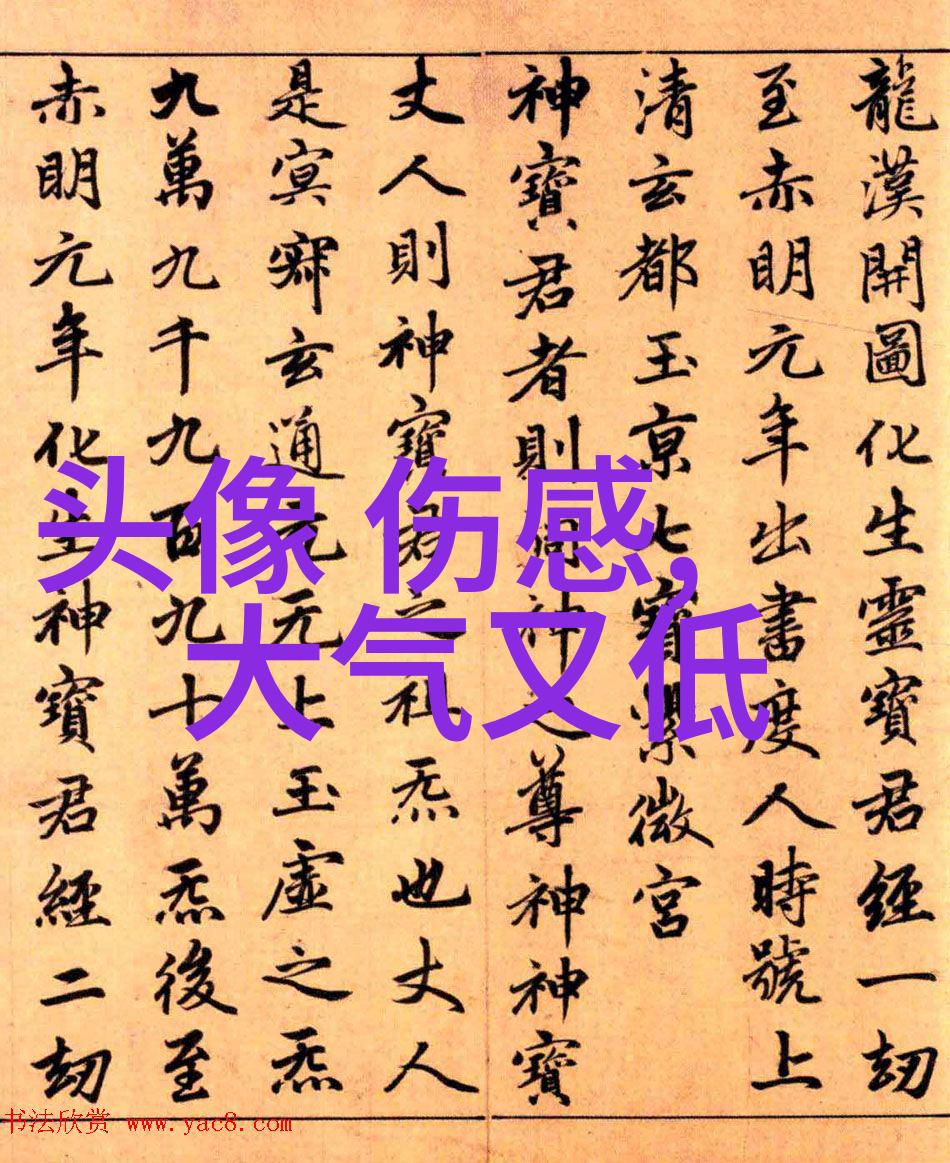 龍漢開圖化生靈寶君經一劫
至赤明元年出書度人時號上
清玄都玉京七寶紫微宮
神寶君者則洞神之尊神神寶
丈人則神寶君之祖炁也丈人
是冥寂玄通元无上玉虛之炁
九萬九千九百九十萬炁後至
赤明元年化生神寶君經二劫
头像 伤感,
大气又低
书法欣赏 www.yac8.com